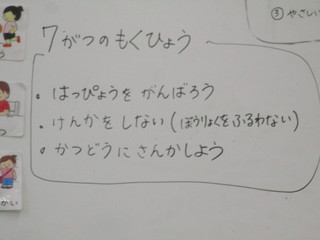 ③ やさしい
7がつのもくひょう
・はっぴょうを がんばろう
・けんかを しない(ぼうりょくをふるわない)
・かつどうに さんかしよう
つ
かい